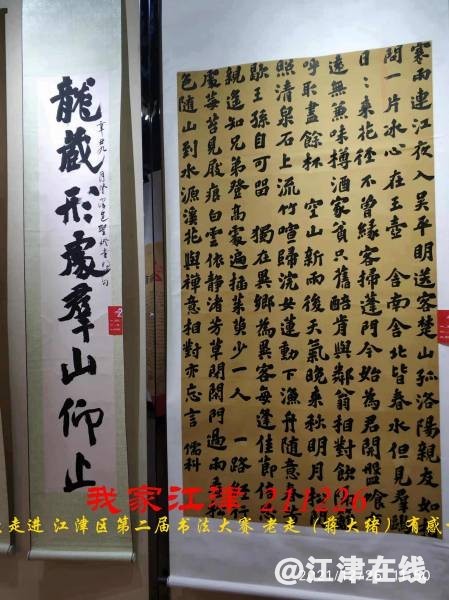 寒雨連江夜入吴平明送客楚山孤洛陽親友如
問一片冰心在玉壺 舍南舍北皆春水但見羣鷗
日:来花徑不曾緣客掃蓬門今始為君開盤飧
遠無兼味樽酒家貧只舊醅肯與鄰翁相對飲
呼取盡餘杯 空山新雨後天氣晚来秋明月松
照清泉石上流竹喧歸浣女蓮動下漁舟随意
歇王孫自可留 獨在異鄉為異客每逢佳節倍
親遥知兄弟登高處遍插茱萸少一人 一路經行
處莓苔見履痕白雲依静渚芳草閉閑門過雨看松
色随山到水源溪花與禪意相對亦忘言 儒科
龍蔵形處羣山仰止
辛丑
我家江津 211226
走进江津区第二届书法大赛老走（蒋大绪）有感
@江津在线